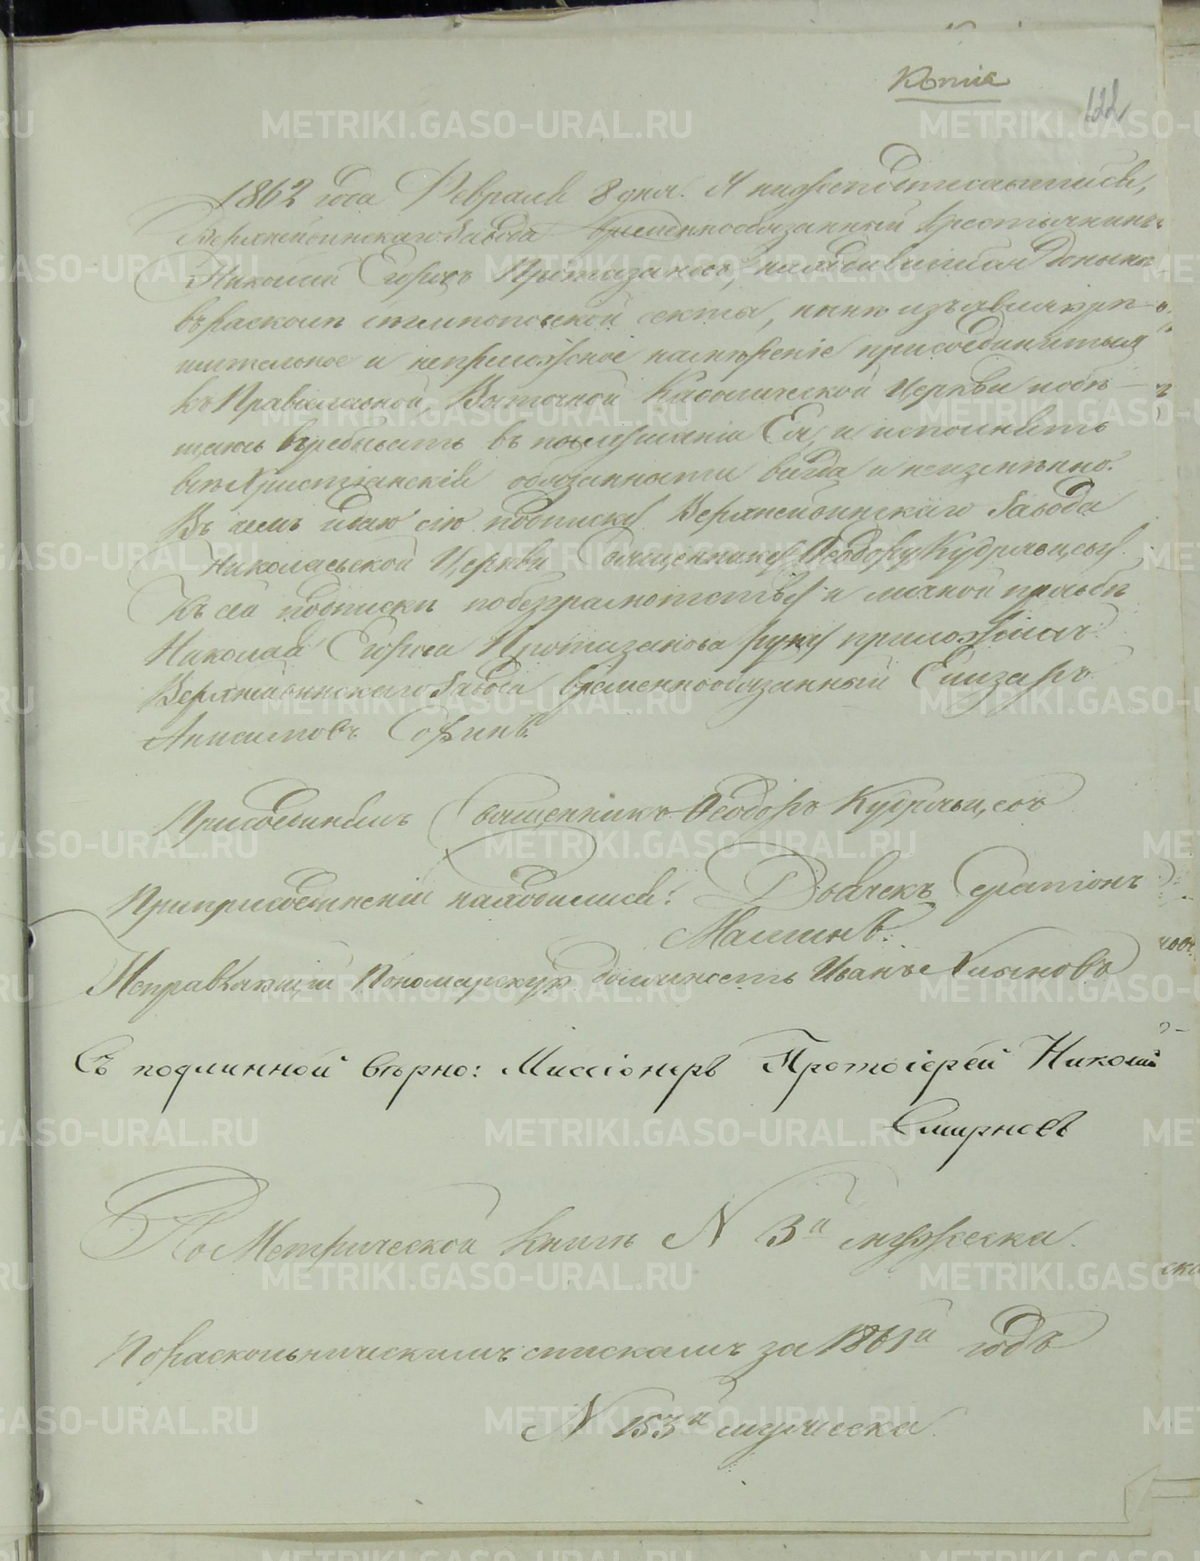 Копія
122
1862 года Февраля 8 дня. Я нижеподписавшійся,
Верхнетагинскаго Завода временнообязанный крестьянинъ
Николай Егоровъ Протазановъ, находившійся доныне
въ расколѣ секты, ныне изъявляю рѣ-
шительное и непреложное намѣреніе присоединиться
къ Православной, Восточной Кафолической Церкви и обѣ-
щаюсь пребывать въ послушаніи Ея, и исполнять
все Христіанскія обязанности всегда и неизменно.
Въ чемъ и даю сію подписку Завода
Николаевской Церкви Священнику Ѳеодору Кудрявцеву.
Къ сей подписки по безграмотству и личной прозьбѣ
Николая Егорова Протазанова руку приложилъ
Завода временнообязанный Елизаръ
Анисимовъ
Присоединилъ Священникъ Ѳеодоръ Кудрявцовъ
При присоединеніи находились: Дьячекъ Серапіонъ
Малинъ.
Исправляющій Пономарскую должность Иванъ
Съ подлинной вѣрно: Миссіонеръ Протоіерей Николай
Смирновъ
По Метрической книгѣ N 3й мужеска.
По раскольническимъ спискамъ за 1861й годъ
N 153й мужеска.
METRIKI.GASO-URAL.RU